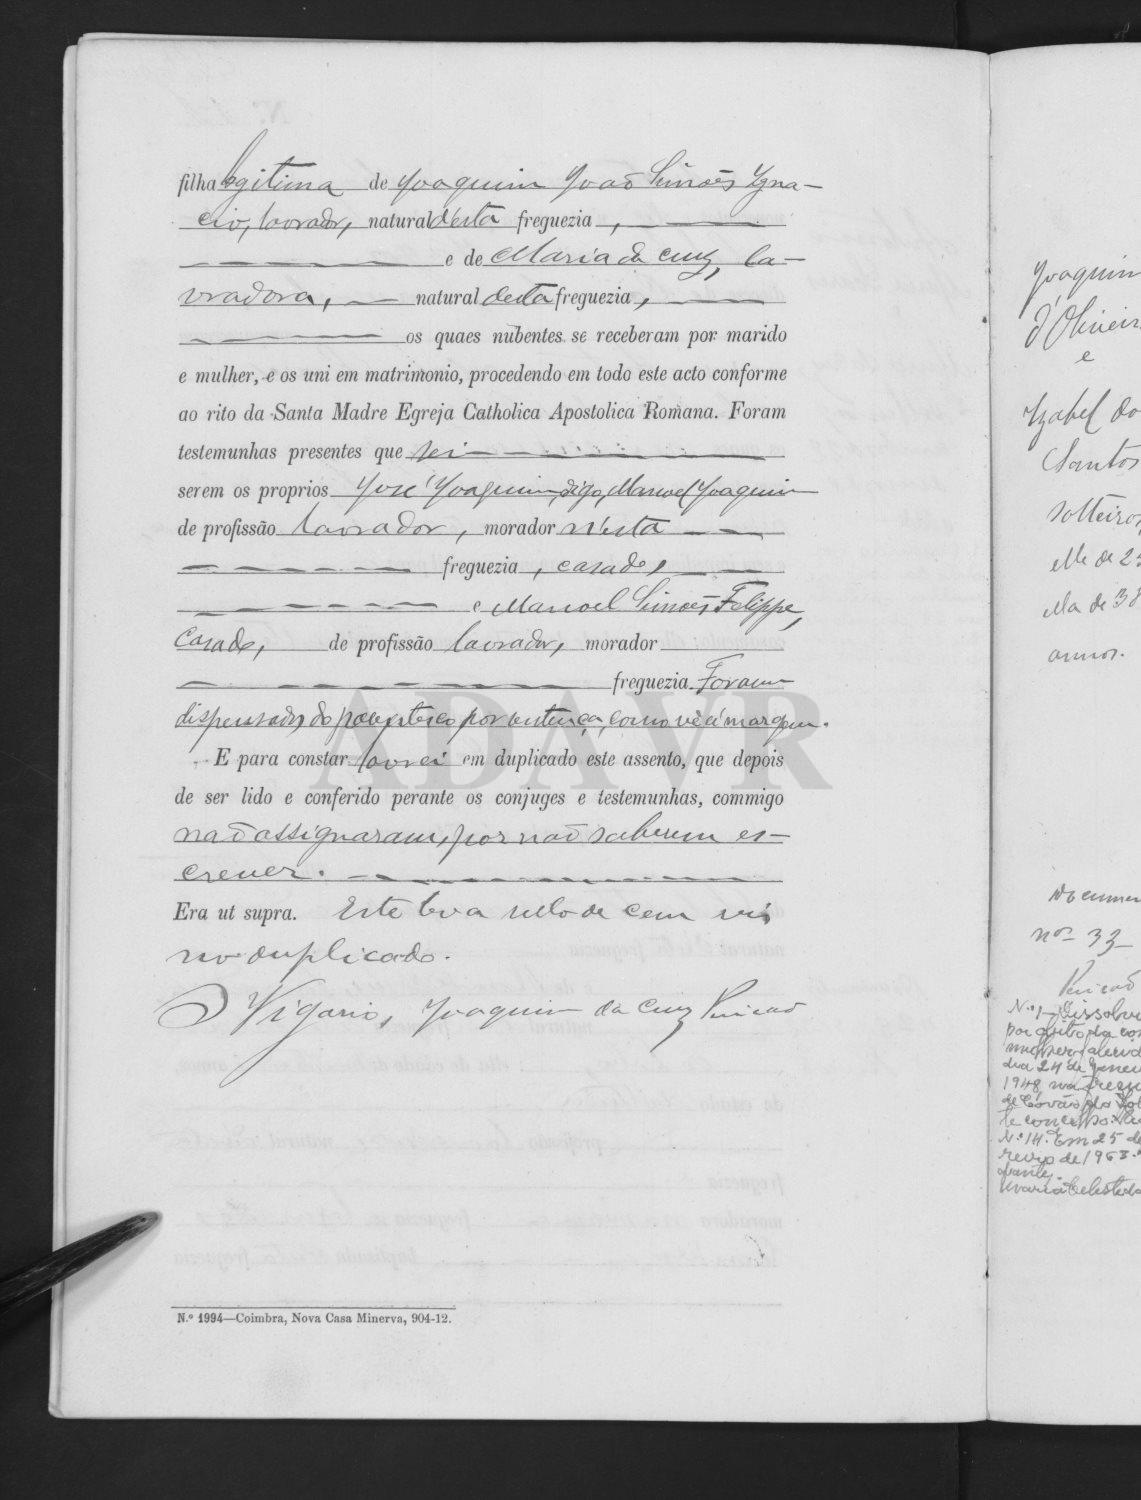 filha legitima de Joaquim João Simões Igna-
cio, lavrador, natural d'esta freguezia,
e de Maria da Cruz, la-
vradora, natural desta freguezia,
os quaes nubentes se receberam por marido
e mulher, e os uni em matrimonio, procedendo em todo este acto conforme
ao rito da Santa Madre Egreja Catholica Apostolica Romana. Foram
testemunhas presentes que sei
serem os proprios José Joaquim, digo, Manoel Joaquim
de profissão lavrador, morador n'esta
freguezia, casado,
e Manoel Simões Filippe,
casado, de profissão lavrador, morador
freguezia. Foram
dispensados do parentesco por sentença, como vê á margem.
E para constar lavrei em duplicado este assento, que depois
de ser lido e conferido perante os conjuges e testemunhas, commigo
não assignaram, por não saberem es-
crever.
Era ut supra. Este leva sello de cem reis
no duplicado.
O Vigario, Joaquim da Cruz
N.º 1994—Coimbra, Nova Casa Minerva, 904-12.
ADAVR
Joaquim
d'Oliveir
e
Izabel do
Santos
solteiros,
elle de 2
ella de 38
annos.
Documen
nos 33
N.º 1 - Dissolvi
por óbito da
mulher
dia 24 de Janei
1948 na fregu
de Covão do Lo
N.º 14. Em 25 de
de 1963.
Maria Celeste da